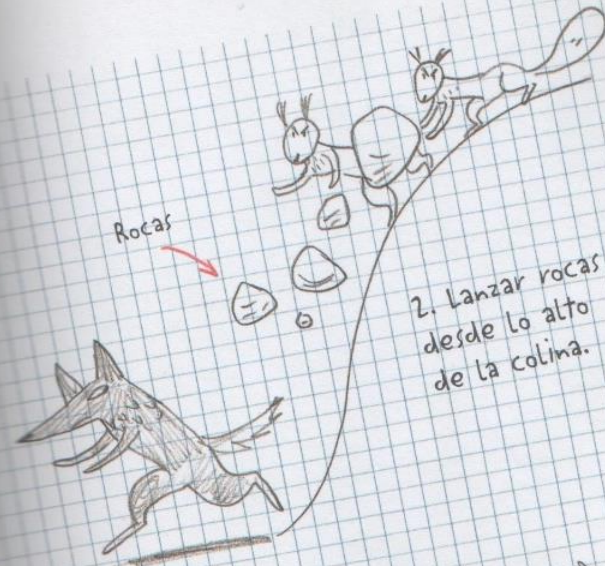 Rocas
2. Lanzar rocas
desde lo alto
de la colina.